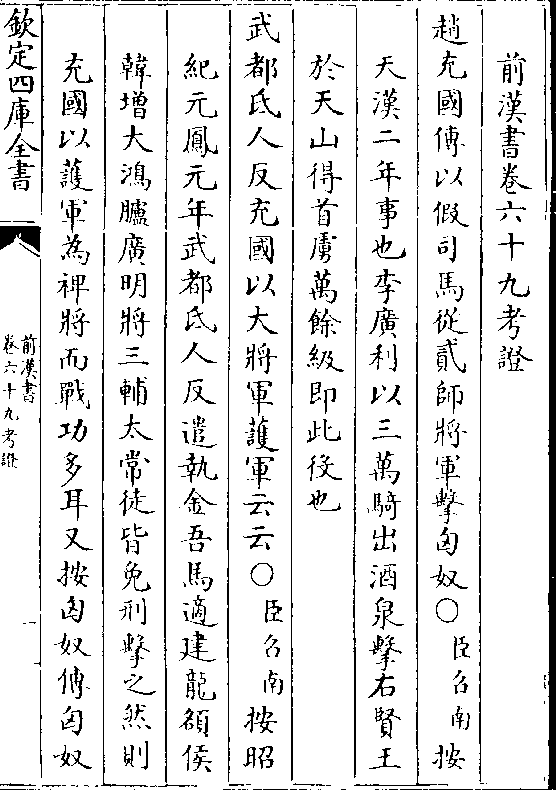 前漢書卷六十九考證
趙充國傳以假司馬從貳師將軍擊匈奴○臣召南按
天漢二年事也李廣利以三萬騎出酒泉擊右賢王
於天山得首虜萬餘級即此役也
武都氐人反充國以大將軍護軍云云○臣召南按昭
紀元鳳元年武都氐人反遣執金吾馬適建龍頟侯
韓增大鴻臚廣明將三輔太常徒皆免刑擊之然則
充國以護軍為裨將而戰功多耳又按匈奴傳匈奴
欽定四庫全書
前漢書
卷六十九考證
一